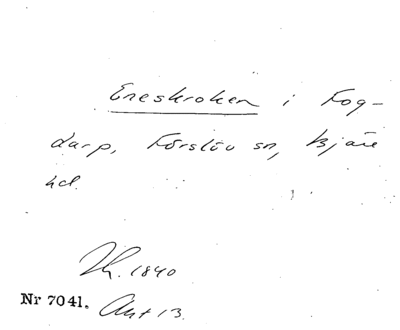 Eneskroken i Fog-
darp, Förslöv sn, Bjäre
hd.
Lk. 1840
Nr 7041. Akt 13.